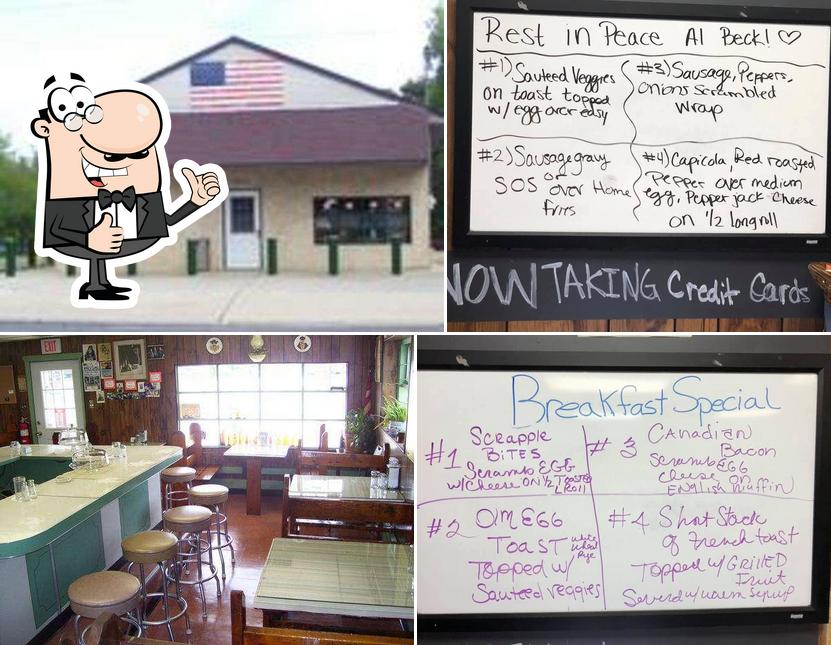 Rest in Peace Al Beck! ♡
#1) Sauteed Veggies
on toast topped
w/ egg over easy
#3) Sausage, Peppers,
onions scrambled
Wrap
#2) Sausage gravy
or
SOS over Home
fries
#4) Capicola, Red roasted
Pepper over medium
egg, Pepper jack cheese
on 1/2 long roll
NOW TAKING Credit Cards
EXIT
Breakfast Special
#1 Scrapple
BiTES
Scramb EGG
w/cheese ON 1/2 Toasted
LRoll
#3 CANadian
Bacon
Scramb EGG
cheese on
ENGlish muffin
#2 OM EGG
Toast white
wheat
Rye
Topped w/
Sauteed veggies
#4 Short Stack
of french toast
Topped w/ GRILLED
Fruit
Served w/ warm syrup